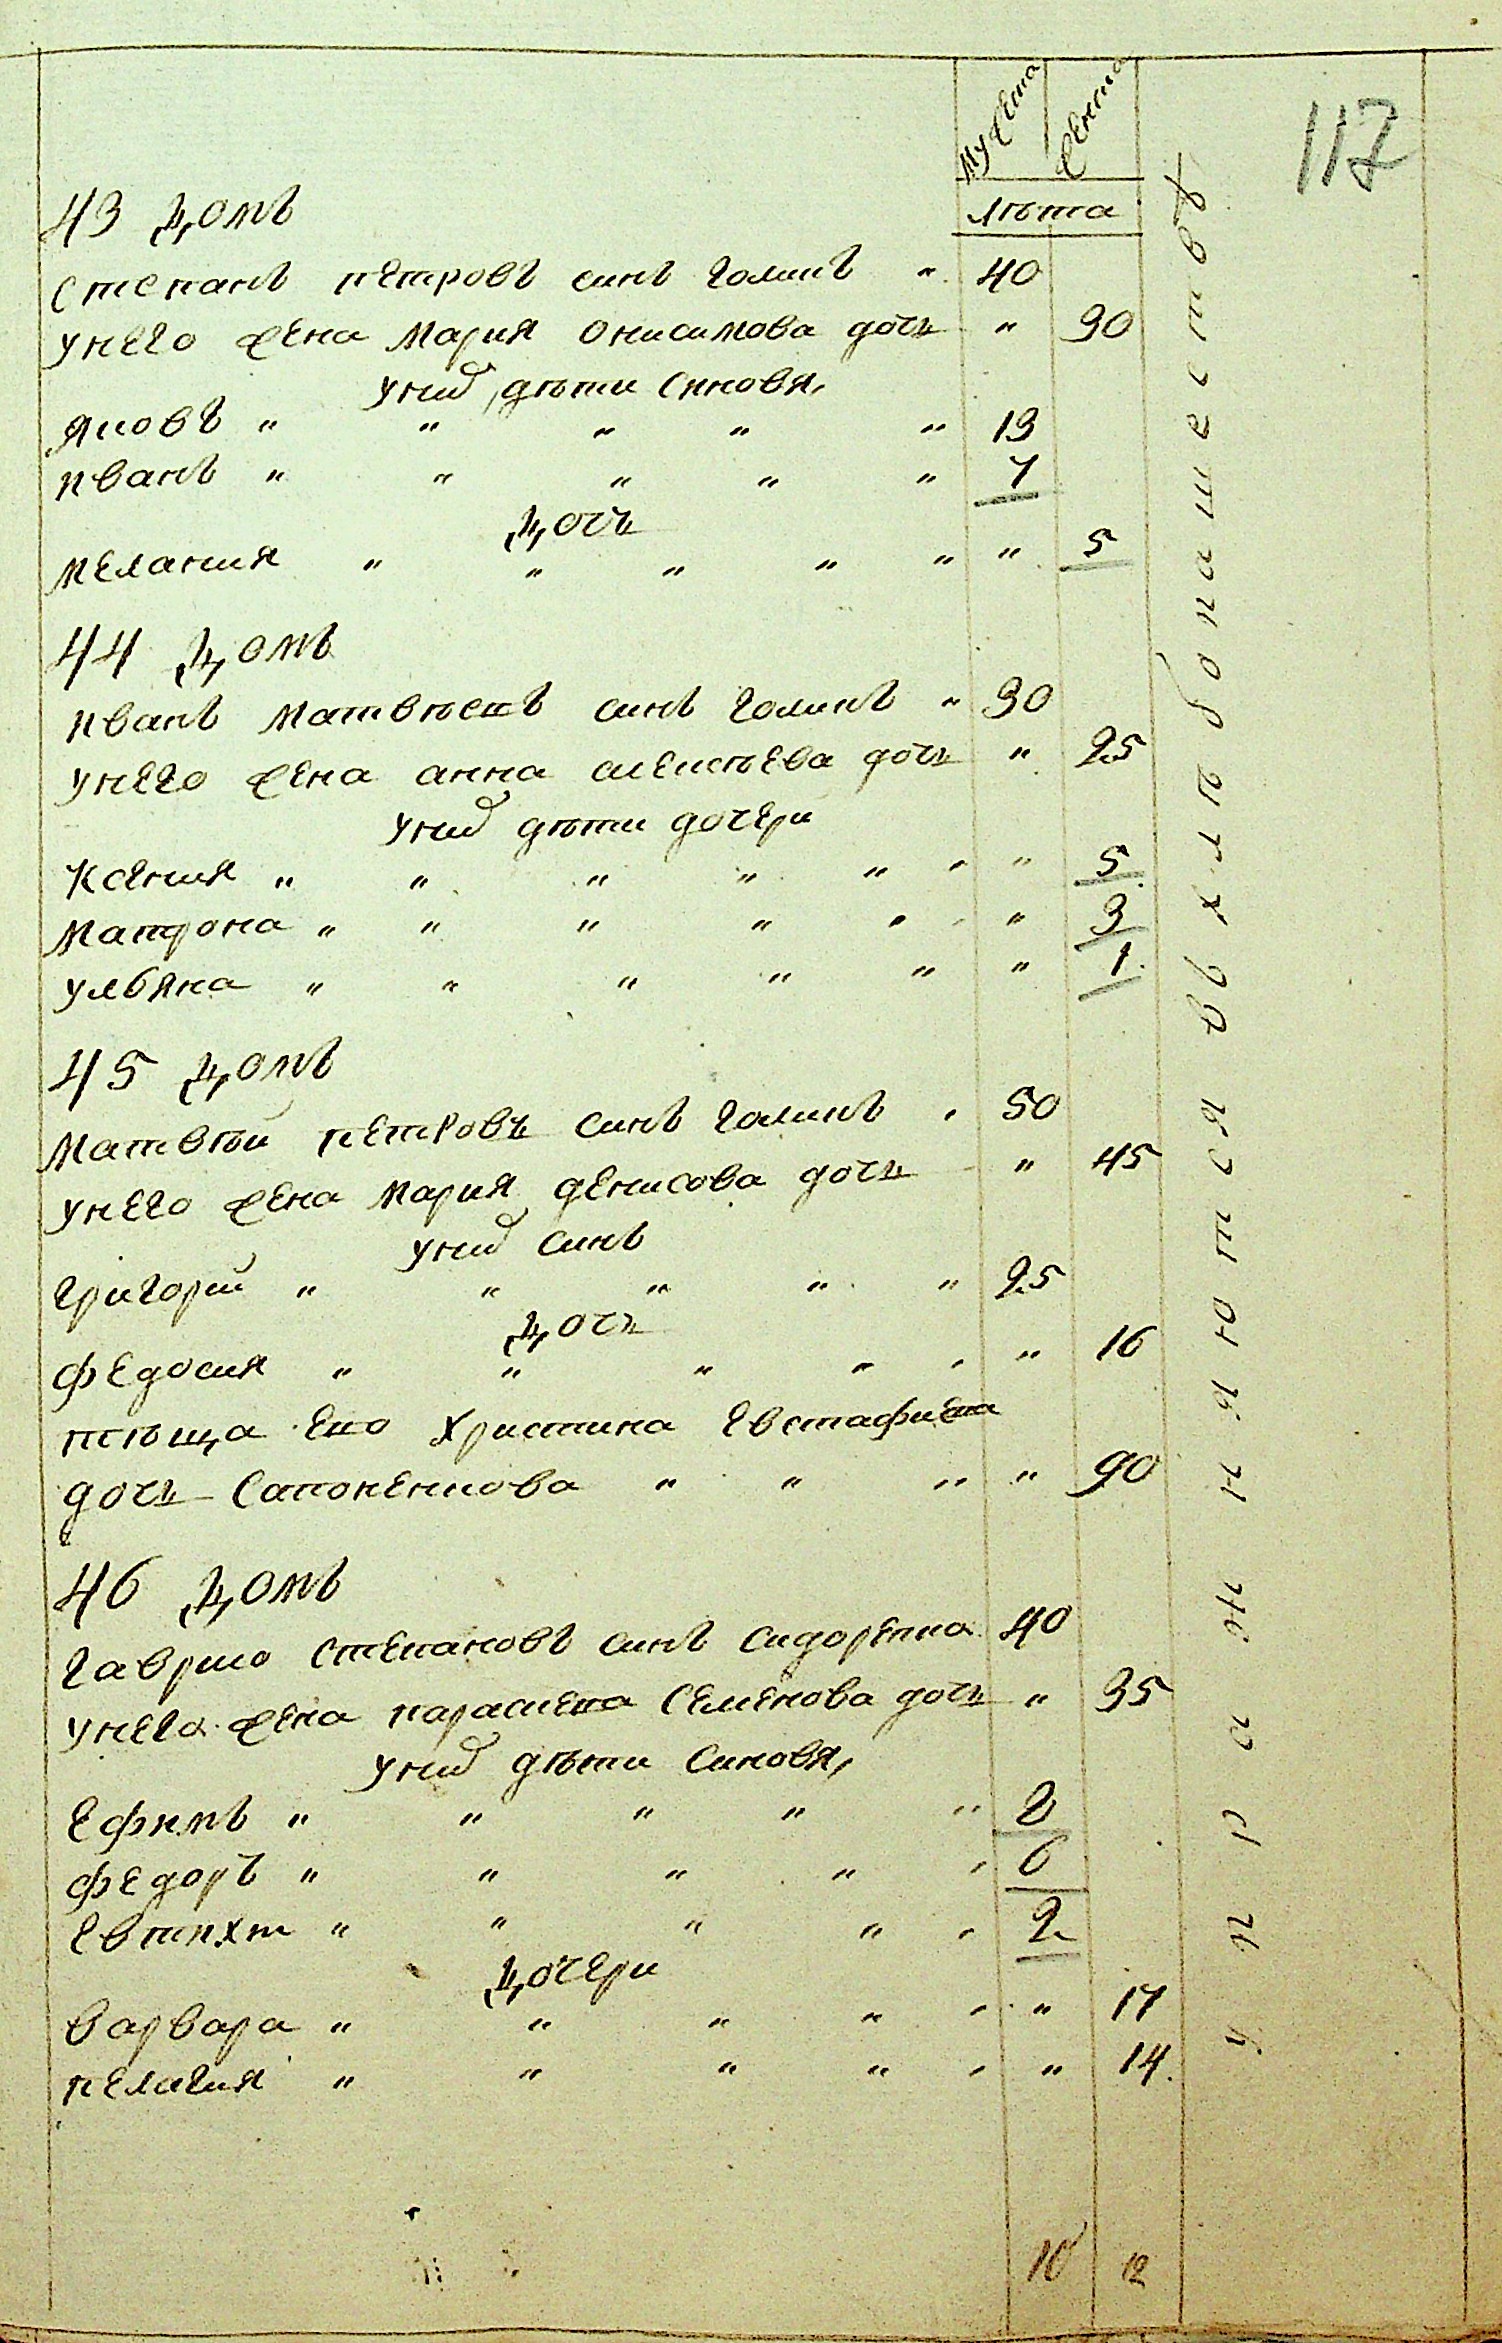 117
Мужеска Женска
лѣта
43 Домъ
Степанъ петровъ синъ Голикъ " 40
унего жена Мария онисимова дочь " 30
уних дѣти Синовя,
Яковъ " " " " " 13
иванъ " " " " " 7
Дочь
мелания " " " " " " 5
44 Домъ
иванъ матвѣевъ синъ Голикъ " 30
унего жена анна алексѣева дочь " 25
уних дѣти дочери
Ксения " " " " " " " 5
Матрона " " " " " " " 3
улбяна " " " " " " 1
45 Домъ
Матвѣй петровъ синъ Голикъ " 50
унего жена мария денисова дочь " 45
уних синъ
Григорий " " " " " 25
Дочь
федосия " " " " " " 16
тѣща его христина Евстафиева
дочь Сапоненкова " " " " 90
46 Домъ
Гаврило Степановъ синъ сидоренко 40
унего жена параскева Семенова дочь " 35
уних дѣти Синовя,
Ефимъ " " " " " 8
федоръ " " " " " 6
Евтихи " " " " " 2
Дочери
варвара " " " " " " 17
пелагия " " " " " " 14
10 12
упражняются въ хлѣбопашествѣ